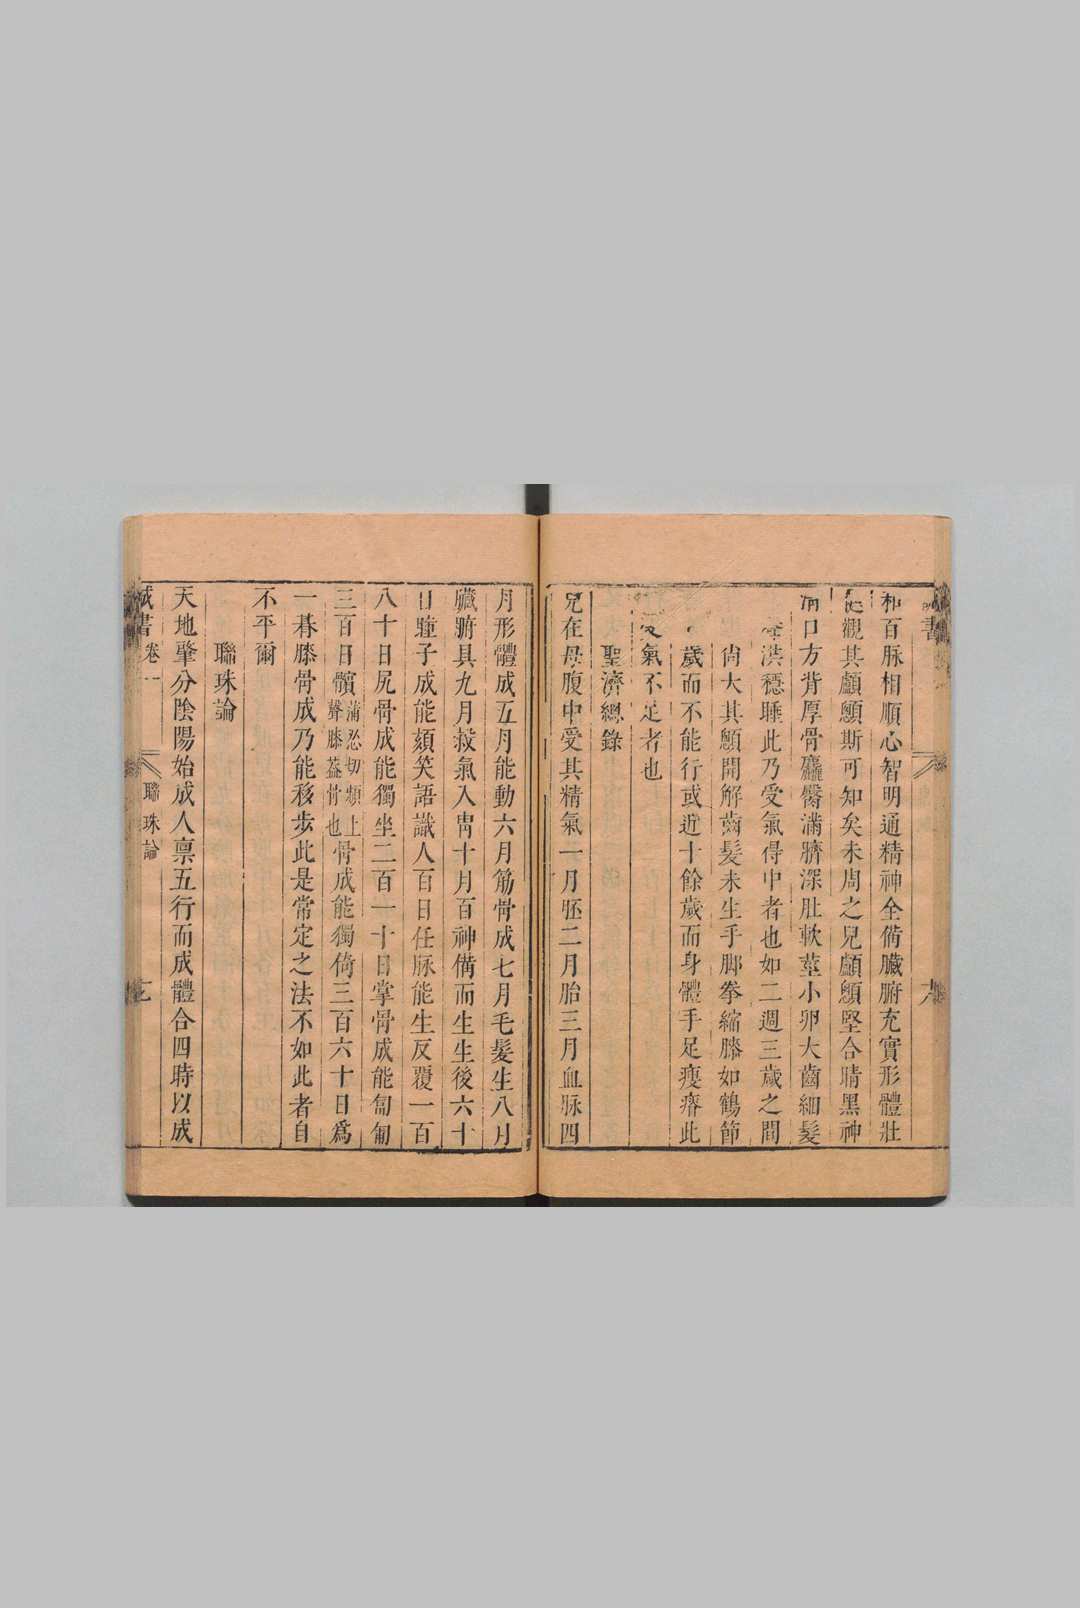 書
六
和百脉相順心智明通精神全備臟腑充實形體壯
觀其顱顖斯可知矣未周之兒顱顖堅合睛黑神
口方背厚骨麤臀滿臍深肚軟莖小卵大齒細髮
洪穩睡此乃受氣得中者也如二週三歲之間
尙大其顖開解齒髮未生手脚拳縮膝如鶴節
歲而不能行或近十餘歲而身體手足瘦瘠此
受氣不足者也
聖濟總錄
兒在母腹中受其精氣一月胚二月胎三月血脉四
月形體成五月能動六月筋骨成七月毛髮生八月
臟腑具九月榖氣入胃十月百神備而生生後六十
日瞳子成能頦笑語識人百日任脉能生反覆一百
八十日尻骨成能獨坐二百一十日掌骨成能匍匐
三百日髕蒲忍切頻上聲膝蓋骨也骨成能獨倚三百六十日爲
一朞膝骨成乃能移步此是常定之法不如此者自
不平爾
聯珠論
天地肇分陰陽始成人禀五行而成體合四時以成
成書 卷一
聯珠論
七